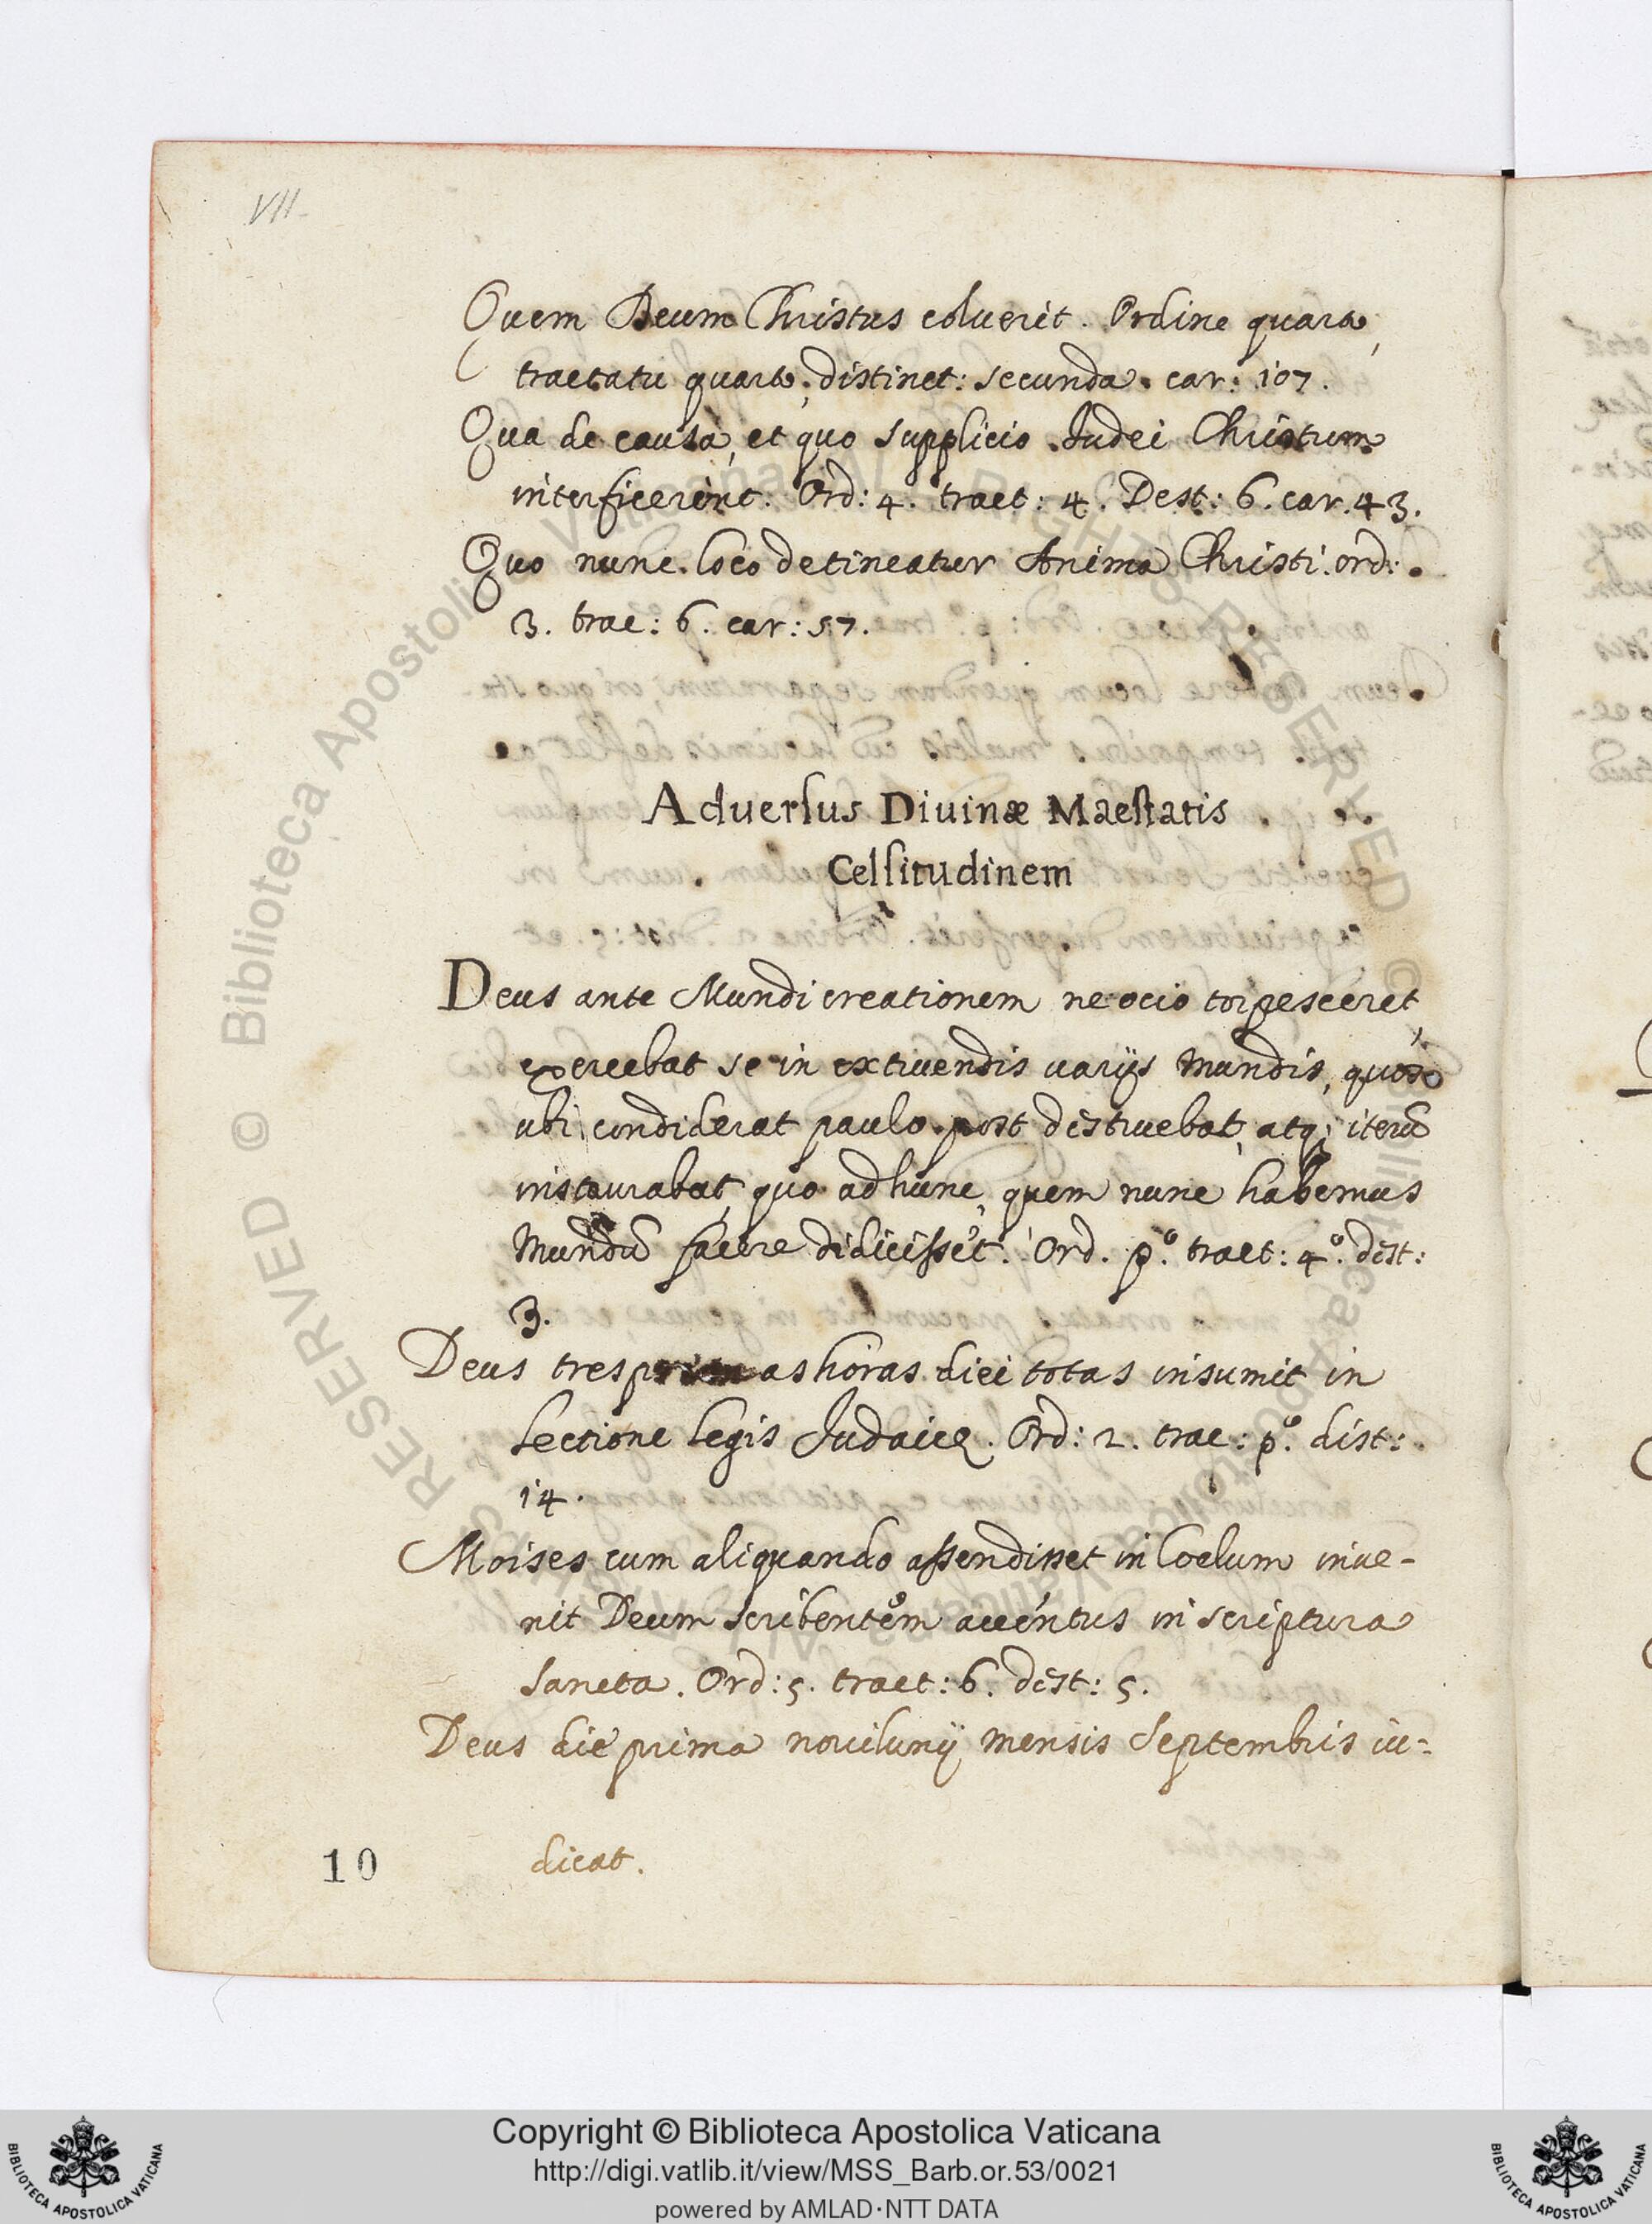 VII
Quem Deum Christus coluerit. Ordine quarto,
tractatu quarto, distinct: secunda. car: 107.
Qua de causa, et quo supplicio Iudei Christum
interficerint. Ord: 4. tract: 4. Dest: 6. car. 43.
Quo nunc loco detineatur Anima Christi. ord:
3. trac: 6. car: 57.
Aduersus Diuinæ Maestatis
Celsitudinem
Deus ante Mundi creationem ne ocio torpesceret,
exercebat se in extruendis uarijs Mundis, quos
ubi condiderat paulo post destruebat, atq; iterũ
instaurabat, quo ad hunc, quem nunc habemus
Mundũ facere didicisset. Ord. p.º tract: 4.º dist:
3.
Deus tres primas horas diei totas insumit in
lectione legis Iudaicę. Ord: 2. trac: p.º dist:
14.
Moises cum aliquando assendisset in Coelum inue-
nit Deum scribentem accentus in scriptura
Sancta. Ord: 5. tract: 6. dist: 5.
Deus die prima nouilunij mensis Septembris iu-
dicat.
10
© Biblioteca Apostolica Vaticana
Copyright © Biblioteca Apostolica Vaticana
http://digi.vatlib.it/view/MSS_Barb.or.53/0021
powered by AMLAD·NTT DATA
BIBLIOTECA APOSTOLICA VATICANA
BIBLIOTECA APOSTOLICA VATICANA